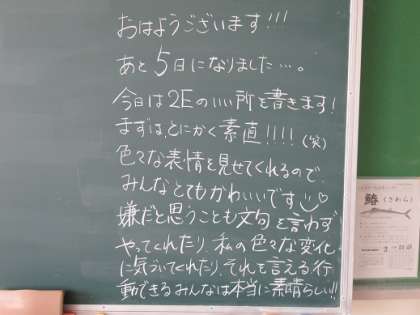 おはようございます!!!
あと5日になりました…。
今日は2Eのいい所を書きます!
まずはとにかく素直!!!!(笑)
色々な表情を見せてくれるので、
みんなとてもかわいいです
嫌だと思うことも文句を言わず
やってくれたり、私の色々な変化
に気づいてくれたり、それを言える行
動できるみんなは本当に素晴らしい!!
鰆(さわら)